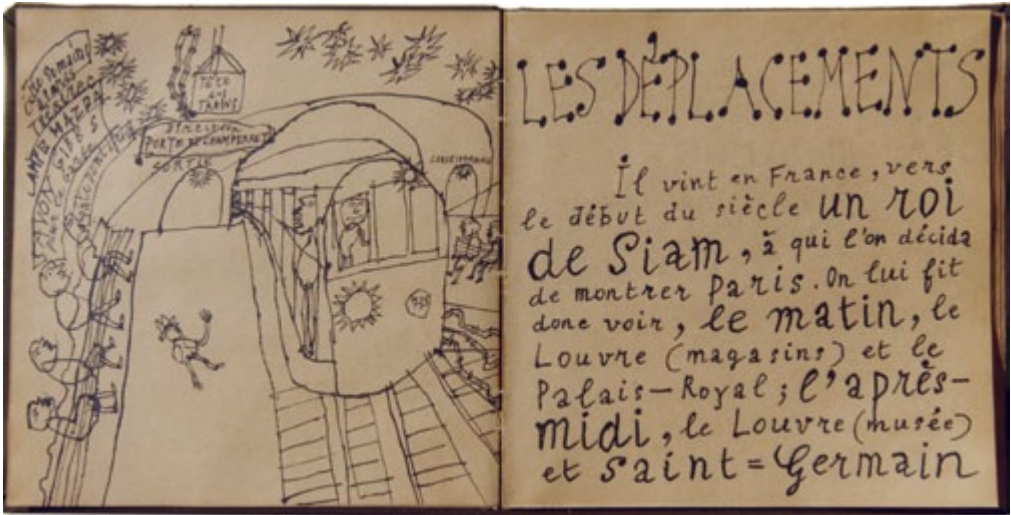 TÊTE
DES
TRAINS
DIRECTION
PORTE DE CHAMPERRET
SORTIE
MAZDA
GIBBS
SAVON
LES DÉPLACEMENTS
Il vint en France, vers
le début du siècle un roi
de Siam, à qui l'on décida
de montrer Paris. On lui fit
donc voir, le matin, le
Louvre (magasins) et le
Palais-Royal; l'après-
midi, le Louvre (musée)
et Saint=Germain